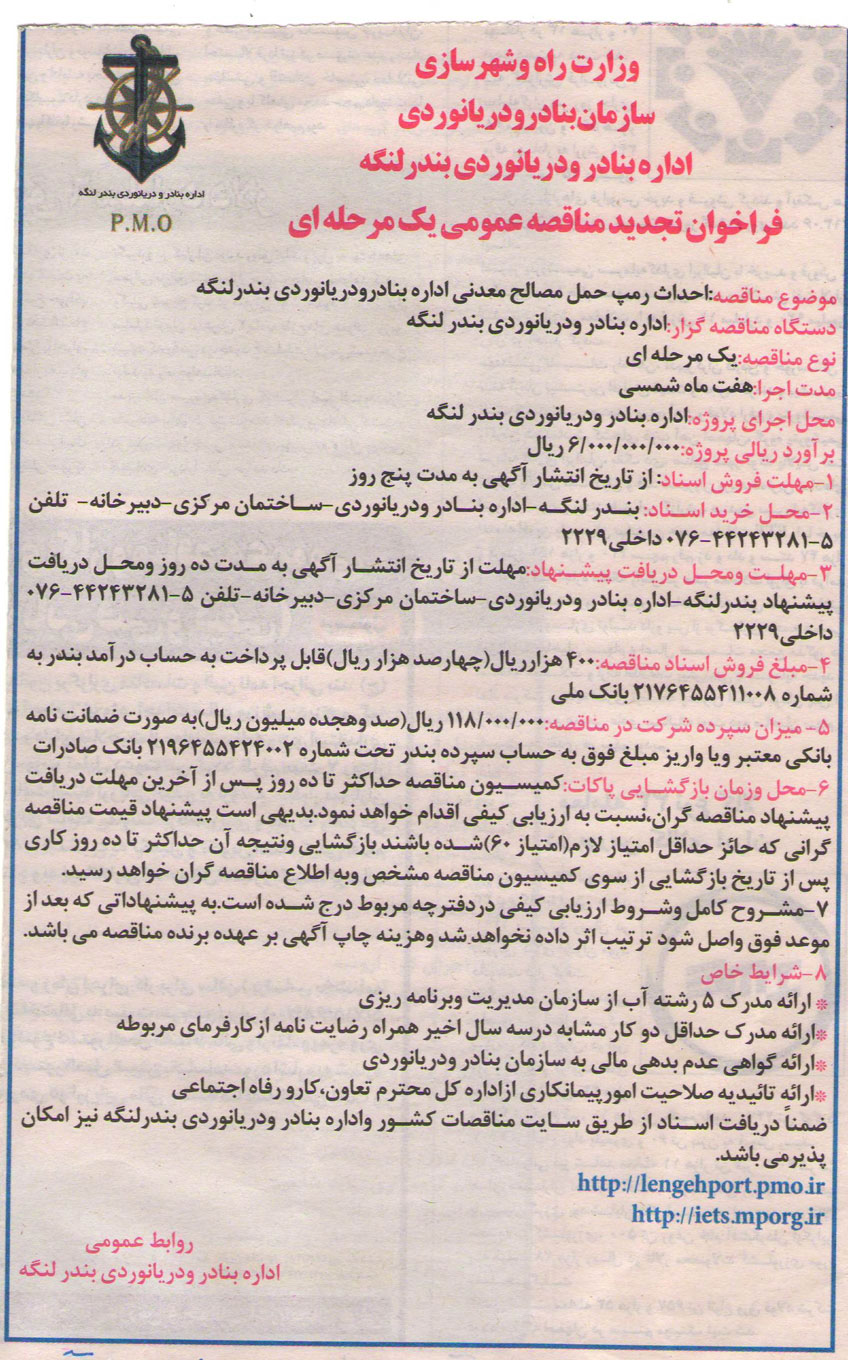 وزارت راه وشهرسازی
سازمان بنادرودریانوردی
اداره بنادر ودریانوردی بندرلنگه
فراخوان تجدید مناقصه عمومی یک مرحله ای
اداره بنادر و دریانوردی بندر لنگه
P.M.O
موضوع مناقصه:احداث رمپ حمل مصالح معدنی اداره بنادرودریانوردی بندرلنگه
دستگاه مناقصه گزار:اداره بنادر ودریانوردی بندر لنگه
نوع مناقصه:یک مرحله ای
مدت اجرا:هفت ماه شمسی
محل اجرای پروژه:اداره بنادر ودریانوردی بندر لنگه
برآورد ریالی پروژه:۶/۰۰۰/۰۰۰/۰۰۰ ریال
۱-مهلت فروش اسناد: از تاریخ انتشار آگهی به مدت پنج روز
۲-محل خرید اسناد: بندر لنگه-اداره بنادر ودریانوردی-ساختمان مرکزی-دبیرخانه- تلفن
۵-۰۷۶-۴۴۲۴۳۲۸۱ داخلی۲۲۲۹
۳-مهلت ومحل دریافت پیشنهاد:مهلت از تاریخ انتشار آگهی به مدت ده روز ومحل دریافت
پیشنهاد بندرلنگه-اداره بنادر ودریانوردی-ساختمان مرکزی-دبیرخانه-تلفن ۵-۰۷۶-۴۴۲۴۳۲۸۱
داخلی۲۲۲۹
۴-مبلغ فروش اسناد مناقصه:۴۰۰ هزارریال(چهارصد هزار ریال)قابل پرداخت به حساب درآمد بندر به
شماره ۲۱۷۶۴۵۵۴۱۱۰۰۸ بانک ملی
۵- میزان سپرده شرکت در مناقصه:۱۱۸/۰۰۰/۰۰۰ ریال(صد وهجده میلیون ریال)به صورت ضمانت نامه
بانکی معتبر ویا واریز مبلغ فوق به حساب سپرده بندر تحت شماره ۲۱۹۶۴۵۵۴۲۴۰۰۲ بانک صادرات
۶-محل وزمان بازگشایی پاکات:کمیسیون مناقصه حداکثر تا ده روز پس از آخرین مهلت دریافت
پیشنهاد مناقصه گران،نسبت به ارزیابی کیفی اقدام خواهد نمود.بدیهی است پیشنهاد قیمت مناقصه
گرانی که حائز حداقل امتیاز لازم(امتیاز ۶۰)شده باشند بازگشایی ونتیجه آن حداکثر تا ده روز کاری
پس از تاریخ بازگشایی از سوی کمیسیون مناقصه مشخص وبه اطلاع مناقصه گران خواهد رسید.
۷-مشروح کامل وشروط ارزیابی کیفی دردفترچه مربوط درج شده است.به پیشنهاداتی که بعد از
موعد فوق واصل شود ترتیب اثر داده نخواهد شد وهزینه چاپ آگهی بر عهده برنده مناقصه می باشد.
۸-شرایط خاص
* ارائه مدرک ۵ رشته آب از سازمان مدیریت وبرنامه ریزی
*ارائه مدرک حداقل دو کار مشابه درسه سال اخیر همراه رضایت نامه ازکارفرمای مربوطه
*ارائه گواهی عدم بدهی مالی به سازمان بنادر ودریانوردی
*ارائه تائیدیه صلاحیت امورپیمانکاری ازاداره کل محترم تعاون،کارو رفاه اجتماعی
ضمناً دریافت اسناد از طریق سایت مناقصات کشور واداره بنادر ودریانوردی بندرلنگه نیز امکان
پذیرمی باشد.
http://lengehport.pmo.ir
http://iets.mporg.ir
روابط عمومی
اداره بنادر ودریانوردی بندر لنگه